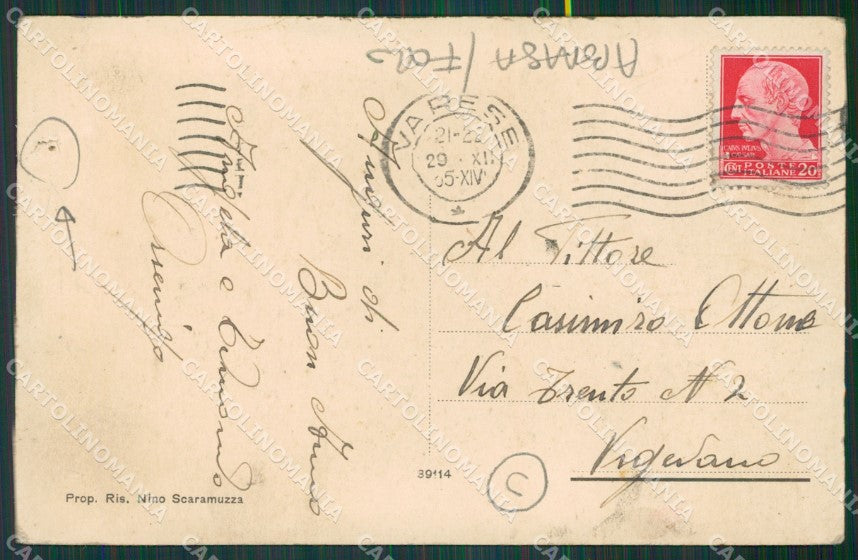 VARESE
21-22
29·XII
35-XIV
CAIVS IVLIVS
CAESAR
POSTE
CENT ITALIANE 20
Auguri di
Buon Anno
Angela e Edmondo
Al Pittore
Casimiro Ottone
Via Trento N 2
Vigevano
39114
Prop. Ris. Nino Scaramuzza
CARTOLINOMANIA